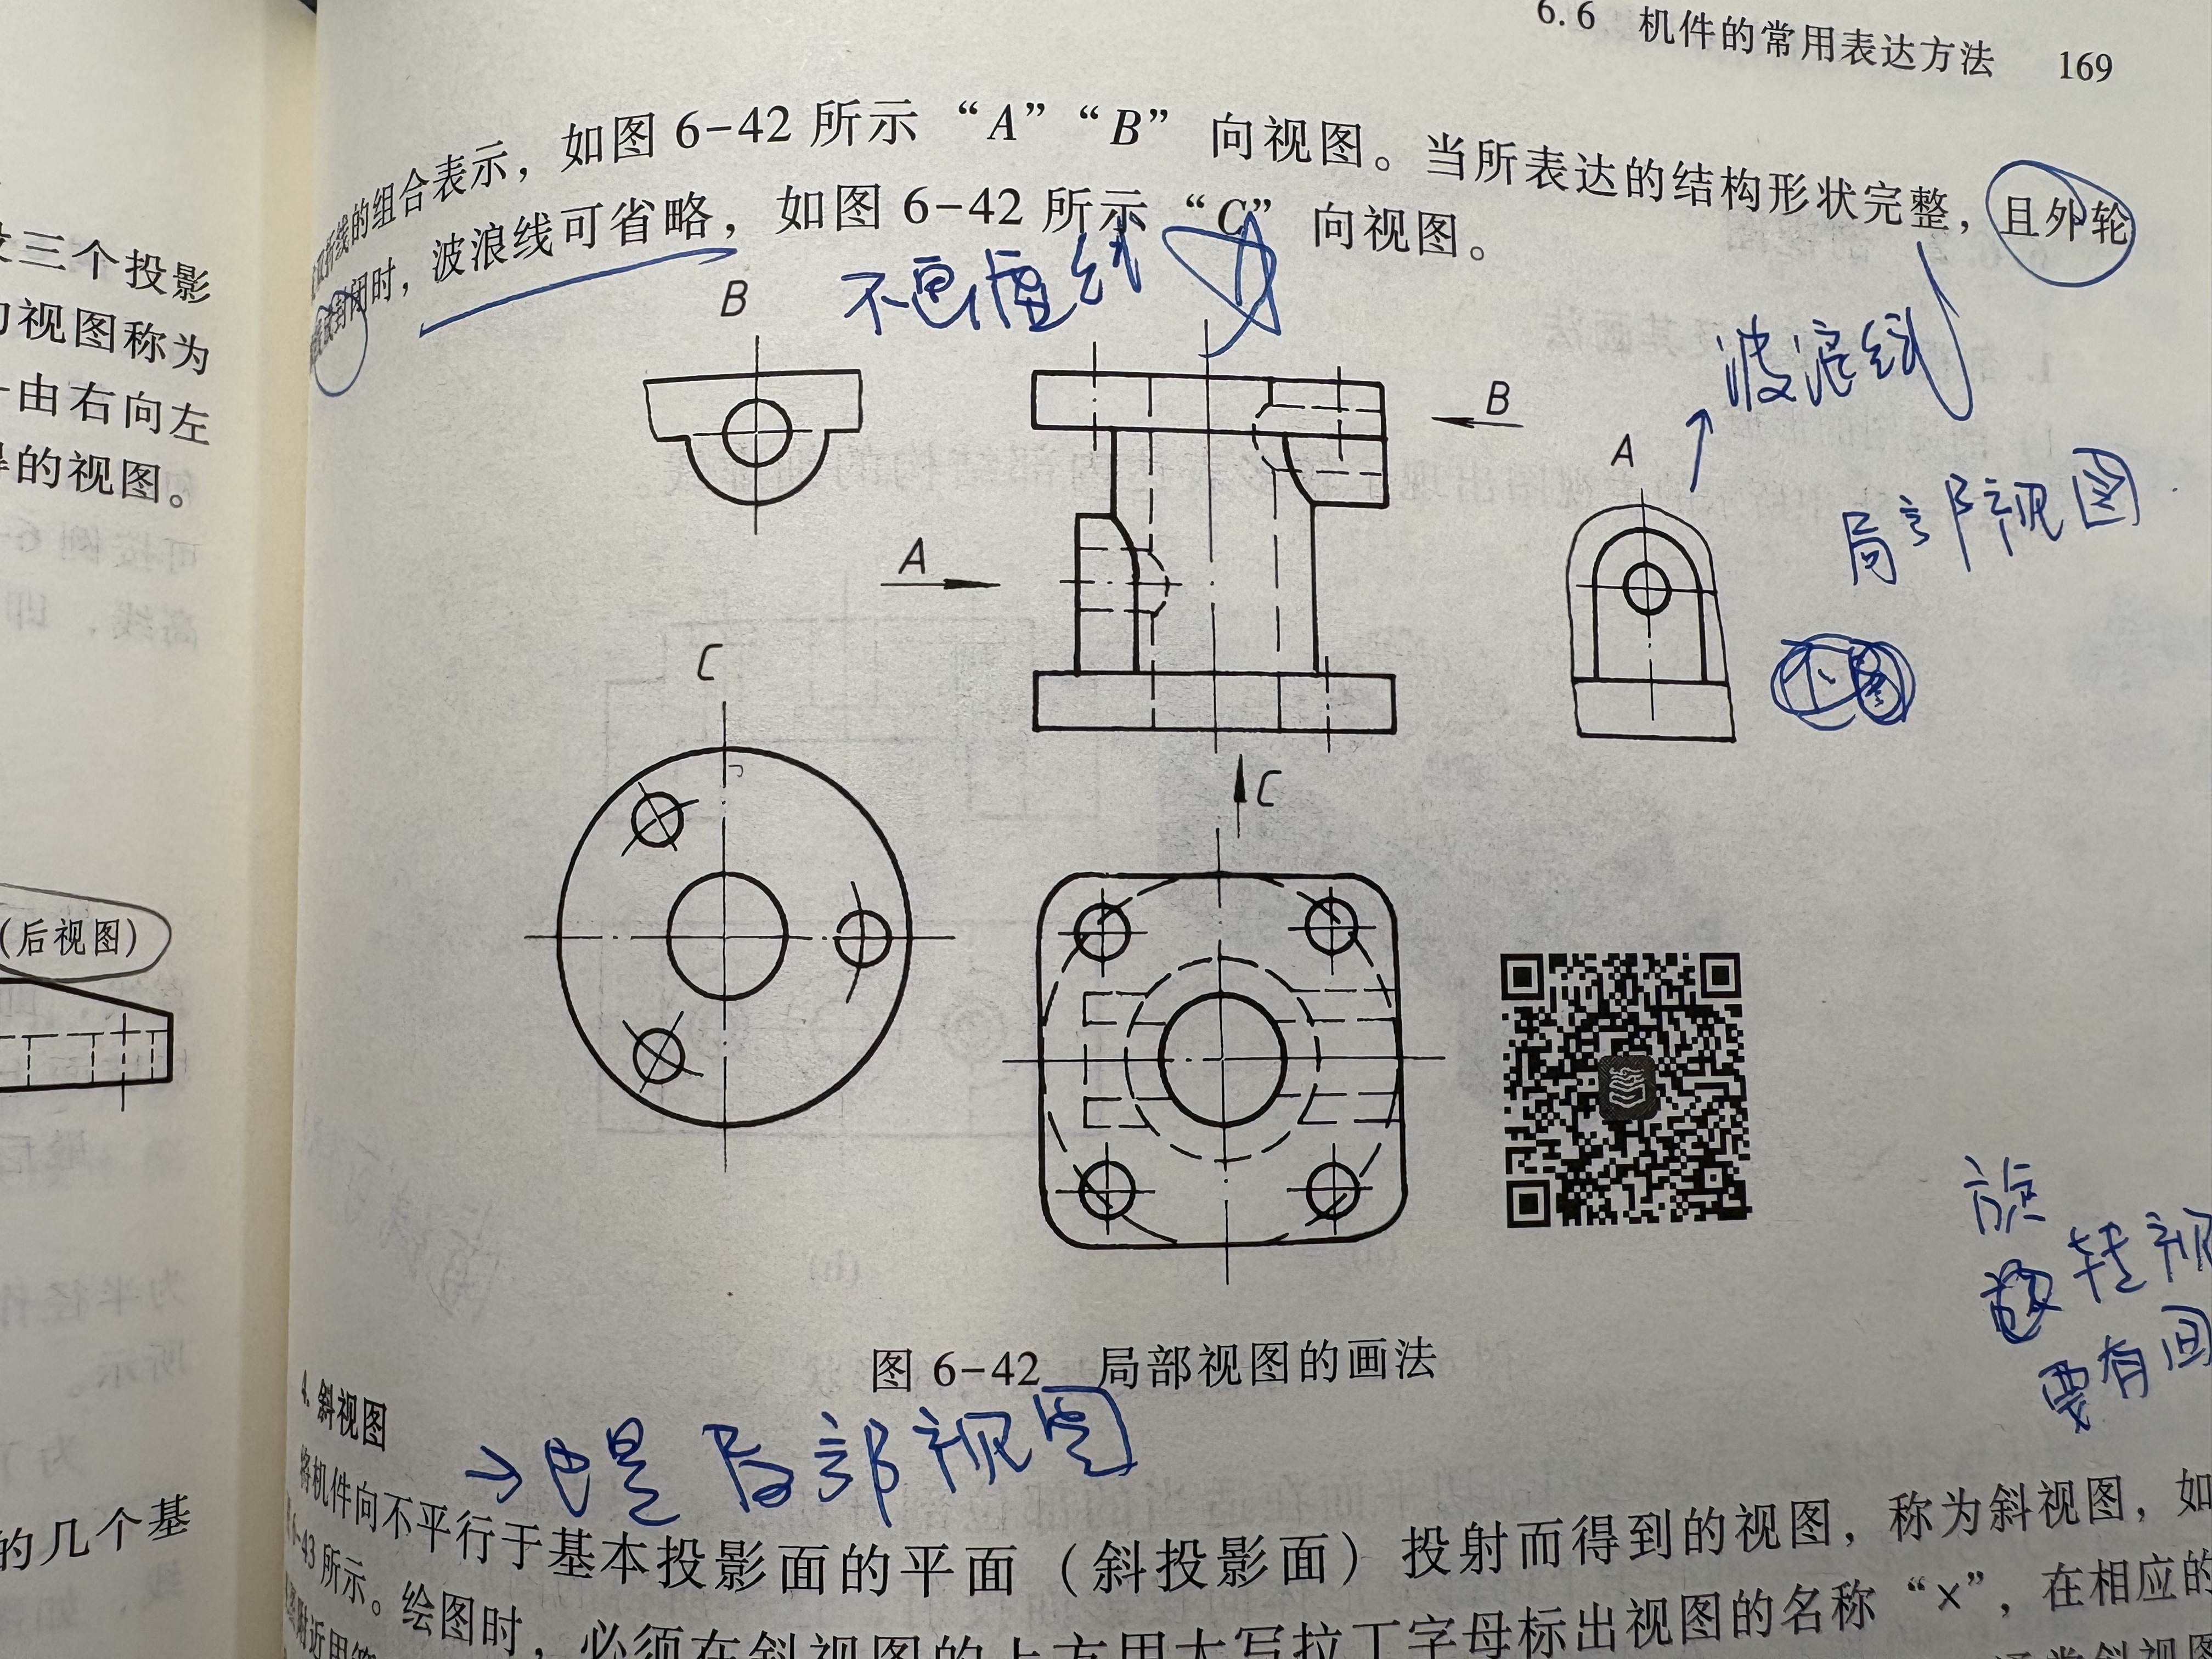 6.6 机件的常用表达方法 169
双折线的组合表示，如图 6-42 所示 “A” “B” 向视图。当所表达的结构形状完整，且外轮
封闭时，波浪线可省略，如图 6-42 所示 “C” 向视图。
不画虚线
波浪线
局部视图
B
B
A
A
C
C
三个投影
视图称为
由右向左
的视图。
(后视图)
的几个基
旋
转视
要有
图 6-42 局部视图的画法
4. 斜视图
→ 也是局部视图
将机件向不平行于基本投影面的平面（斜投影面）投射而得到的视图，称为斜视图，如
6-43 所示。绘图时，必须在斜视图的上方用大写拉丁字母标出视图的名称 “×”，在相应的
附近用箭